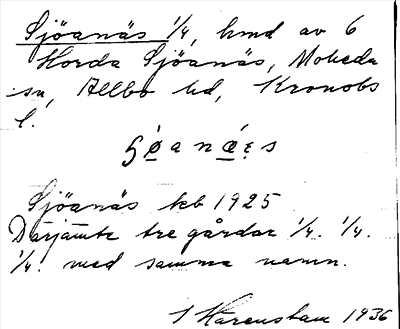 Sjöanäs 1/4, hmd av 6
Horda Sjöanäs, Moheda
sn, Allbo hd, Kronobs
l.
ʂø̀anǽ:s
Sjöanäs kb 1925
Därjämte tre gårdar 1/4. 1/4.
1/4. med samma namn.
1936